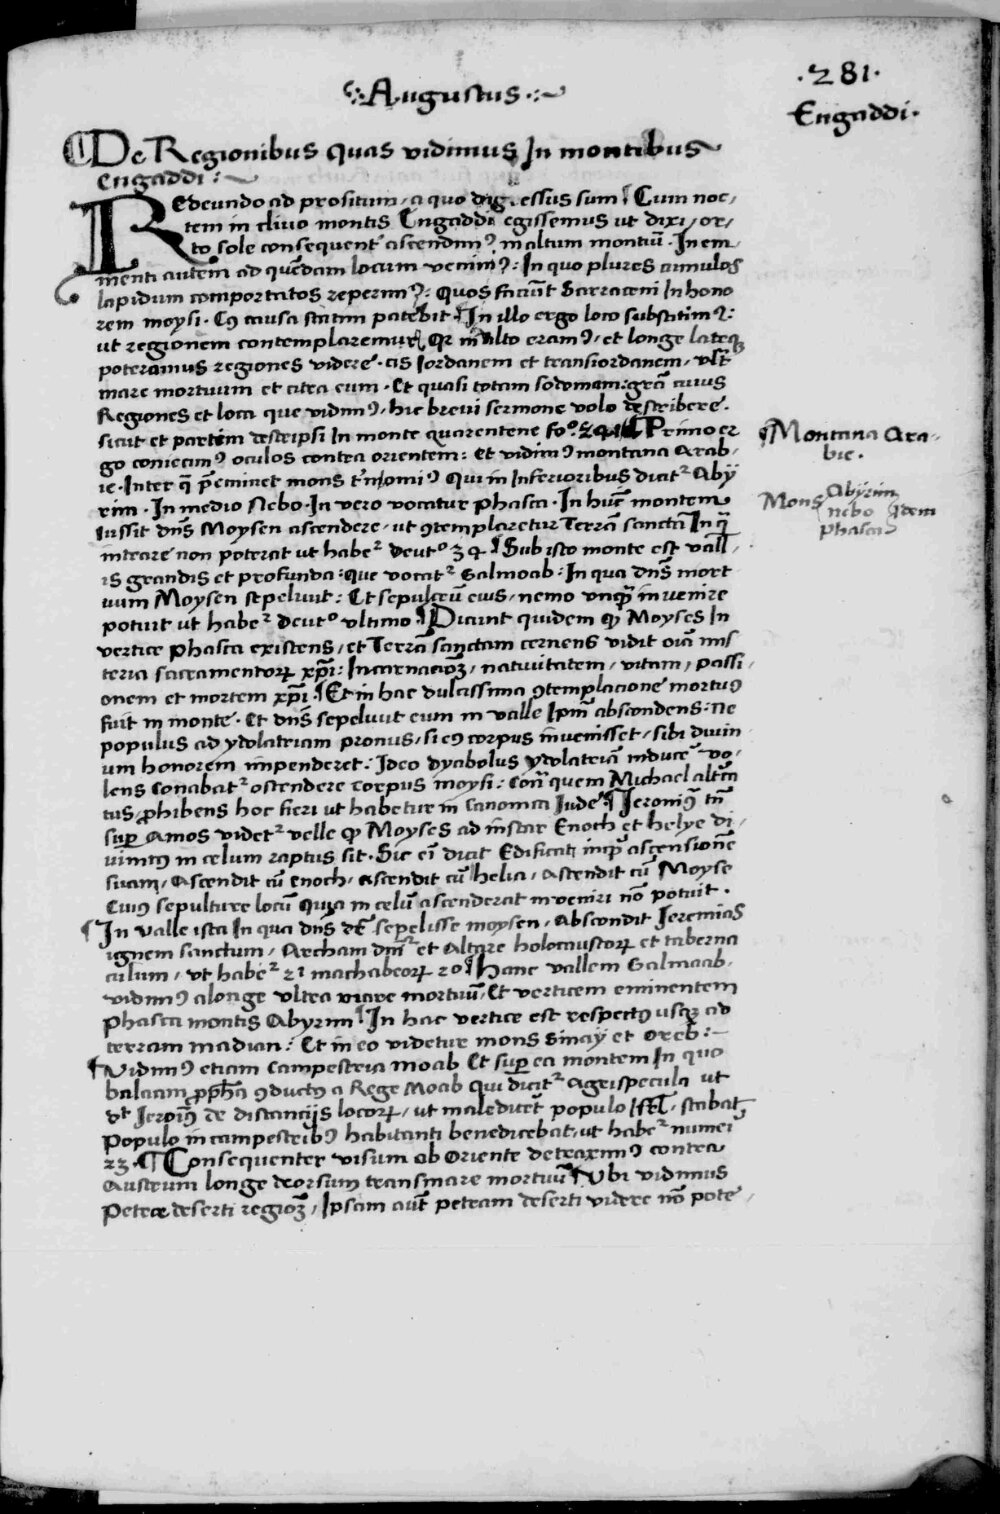 Augustus
.281.
Engaddi.
De Regionibus quas vidimus In montibus
engaddi:
Redeundo ad propositum, a quo digressus sum. Cum noc,
tem in clivo montis Engaddi egissemus ut dixi, or,
to sole consequent̾ ascendimꝰ in altum montiū. In emi
nenti autem ad quēdam locum venimꝰ: In quo plures cumulos
lapidum comportatos reperimꝰ: Quos faciūt Sarraceni In hono
rem moysi. Cꝰ causa statim patebit. In illo ergo loco substitimꝰ:
ut regionem contemplaremur, Qꝛ in alto eramꝰ, et longe lateqꝫ
poteramus regiones videre. cis Iordanem et transiordanem, vltˢ
mare mortuum et citra eum. Et quasi totam sodomam: grā cuius
Regiones et loca que vidimꝰ, hic brevi sermone volo describere.
sicut et partem descripsi In monte quarentene fo.º 241 Primo er
go coniecimꝰ oculos contra orientem: et vidimꝰ montana Arab,
ie. Inter q̄ p̄eminet mons trinomiꝰ Qui in Inferioribus dicatˀ Aby
rim. In medio Nebo. In vero vocatur Phasca. In hūc montem
Iussit dn̄s Moysen ascendere, ut ꝯtemplaretur Terrā sanctā In q̄
intrare non poterat ut habeˀ deutº 34 Sub isto monte est vall,
is grandis et profunda: que vocatˀ Galmoab. In qua dn̄s mort
uum Moysen sepelivit: Et sepulcrū eius, nemo vnq̄ invenire
potuit ut habeˀ deutº vltimo. Dicunt quidem qꝫ Moyses In
vertice Phasca existens, et Terrā sanctam cernens vidit oīa mis
teria sacramentoꝝ xp̄i: Incarnacioꝫ, nativitatem, vitam, passi
onem et mortem xp̄i. Et in hac dulcissima ꝯtemplacione mortuꝰ
fuit in monte. Et dn̄s sepelivit eum in valle Ipm̄ abscondens: ne
populus ad ydolatriam pronus, si eꝰ corpus invenisset, sibi divin
um honorem impenderet: Ideo dyabolus ydolatriā inducere vo,
lens Conabatˀ ostendere corpus moysi: Conˀ quem Michael altˢca
tus, prohibens hoc fieri ut habetur in Canonica Iude. Ieronimꝰ tn̄
super Amos videtˀ velle qꝫ Moyses ad instar Enoch et helye di,
vinitus in celum raptus sit. Sic eī dicit Edificati inq̄ ascensionē
suam, Ascendit cū Enoch, ascendit cū helia, Ascendit cū Moyse
Cuiꝰ sepulture locū Quia in celū ascenderat inveniri nō potuit.
In valle ista In qua dn̄s dr̄ sepelisse moysen, abscondit Ieremias
ignem sanctum, Archam dnī et Altare holocaustoꝝ et taberna
culum, vt habeˀ 21 machabeoꝝ 20. Hanc vallem Galmoab.
vidimꝰ alonge vltra mare mortuū, Et verticem eminentem
Phasca montis Abyrim. In hac vertice est respectꝰ usqꝫ ad
terram madian: Et in eo videtur mons Sinay et Oreb:
Vidimꝰ etiam Campestria moab Et super ea montem In quo
balaam pph̄a ꝯductꝰ a Rege Moab qui dicitˀ Agrispecula ut
dt̄ Ieroīꝰ de distancijs locoꝝ, ut malediceret populo Isr̄l, stabat
Populo in campestribꝰ habitanti benedicebat, ut habeˀ numeī
23. Consequenter visum ab Oriente detraximꝰ contra
Austrum longe deorsum transmare mortuū. Ubi vidimus
Petree deserti regioꝫ, Ipsam aut̄ petram deserti videre nō pote,
Montana Ara,
bie.
Mons Abyrim
nebo Idem
Phasca